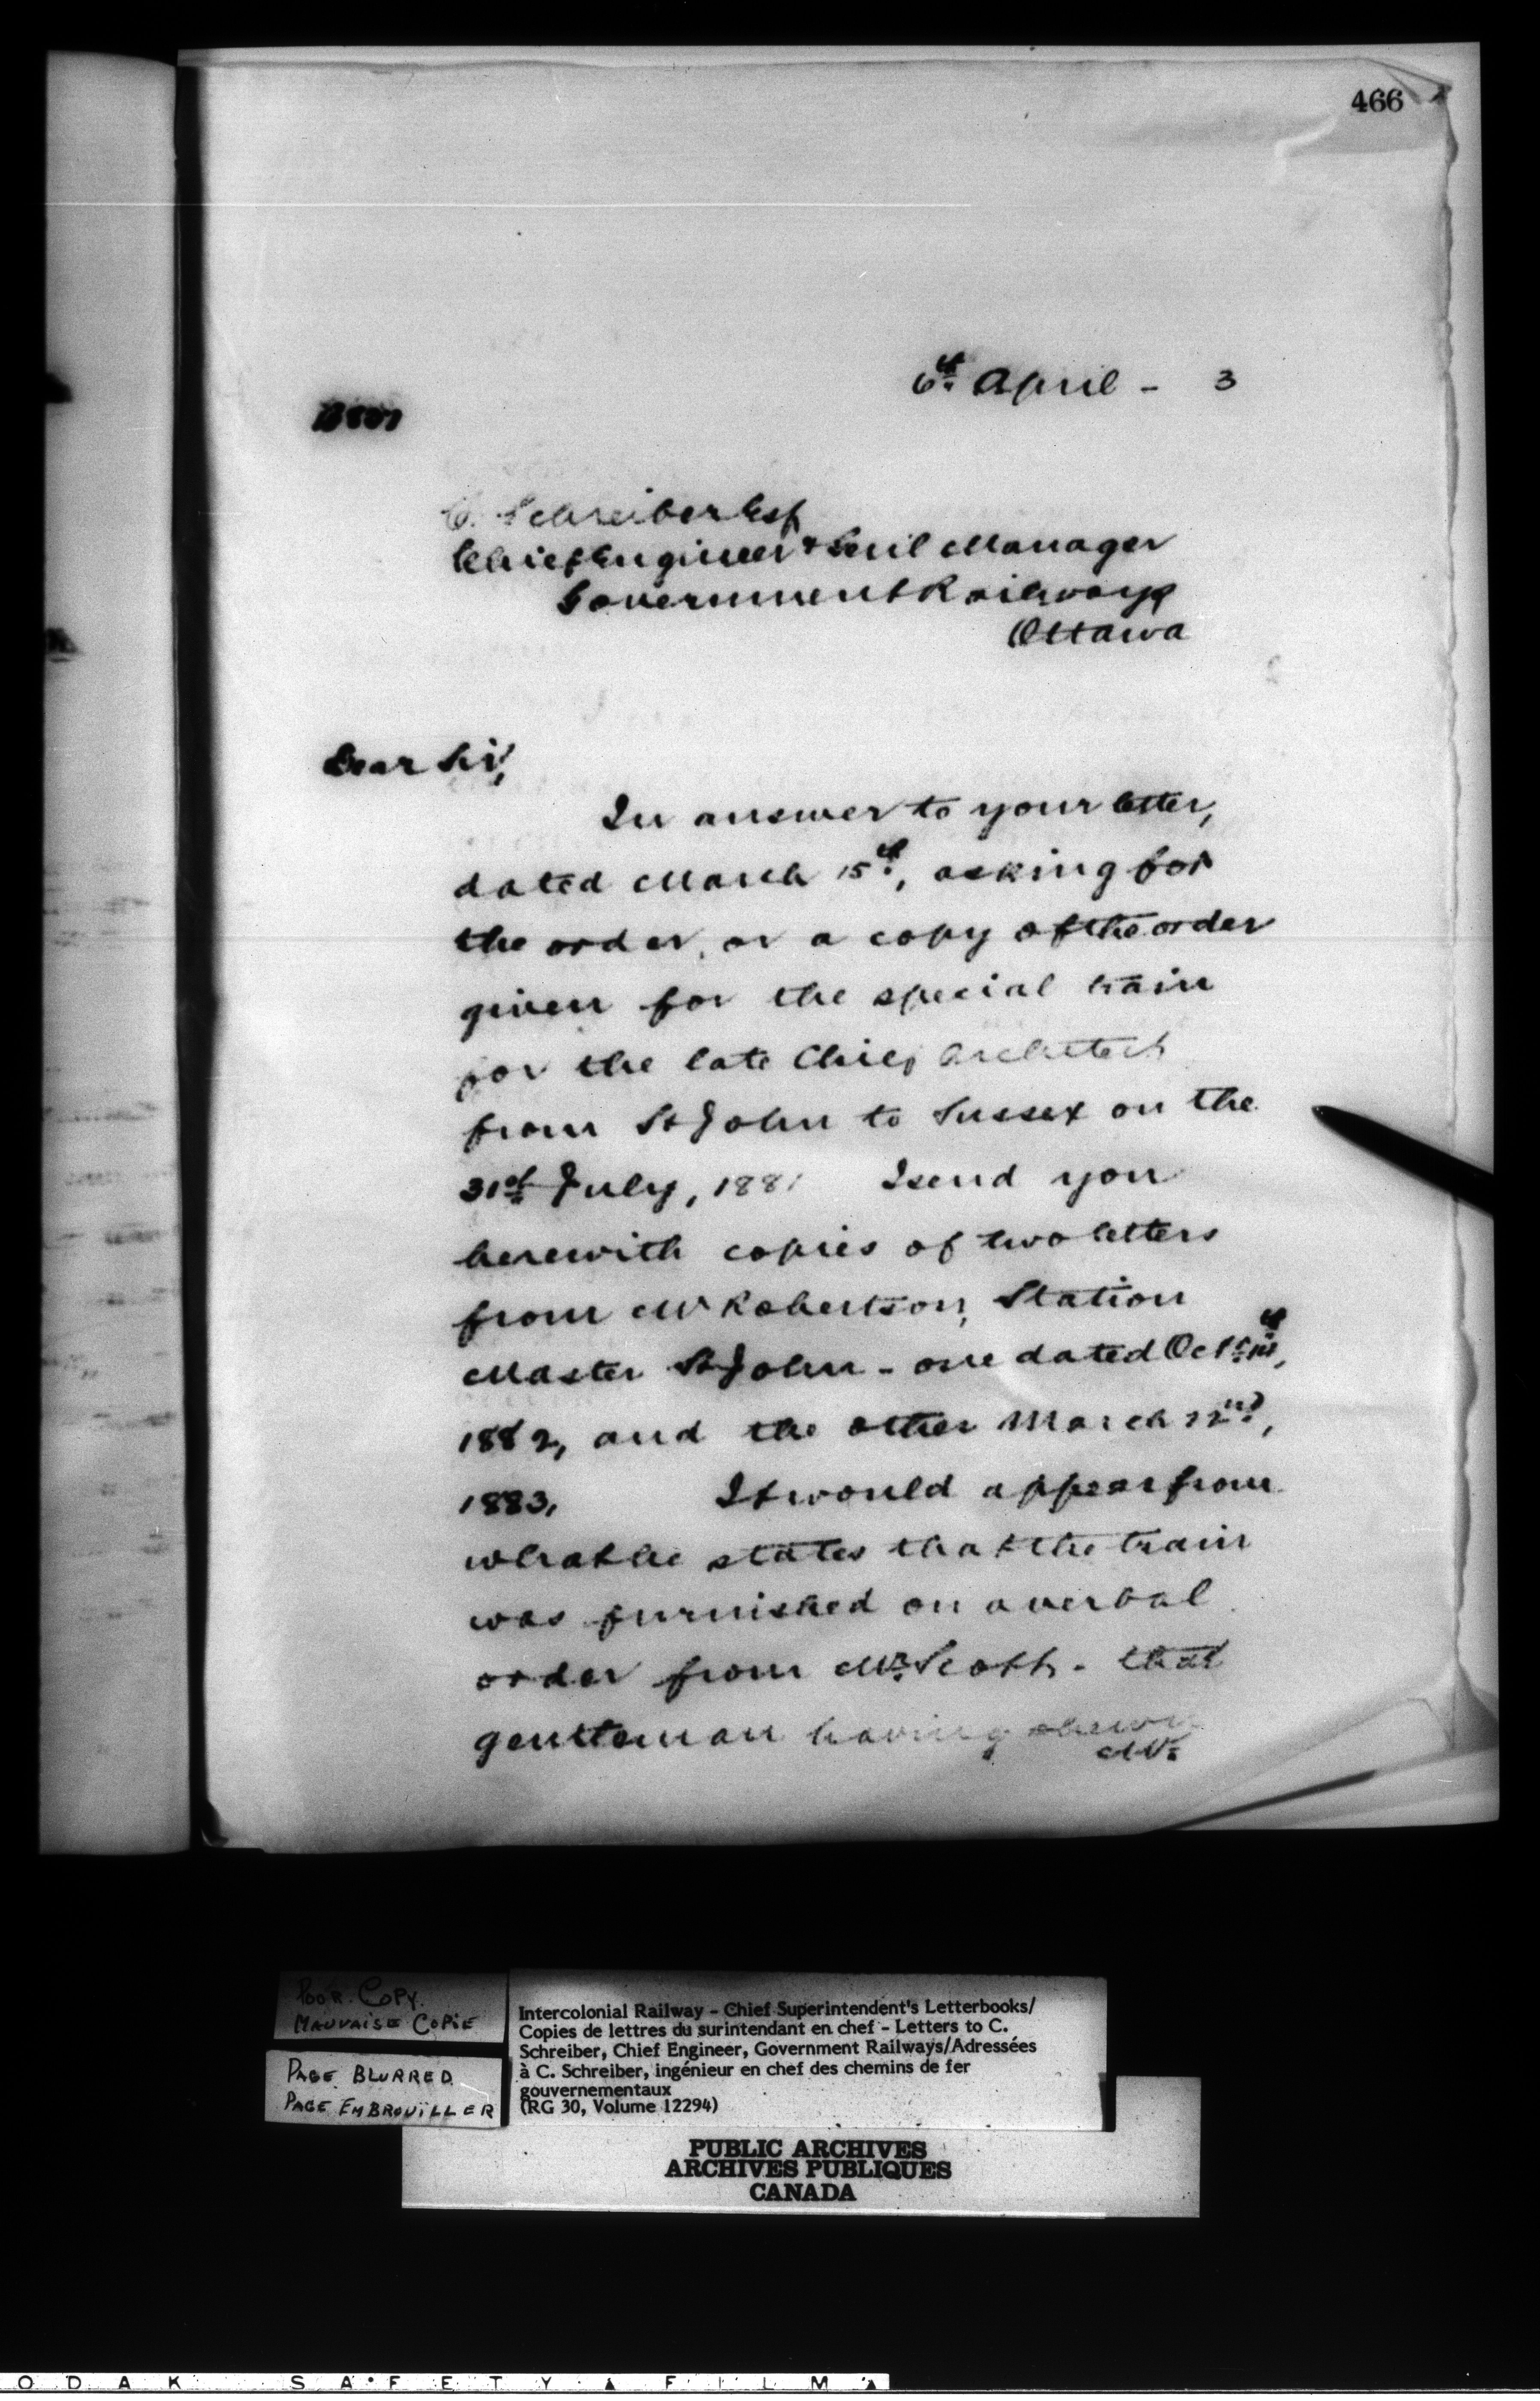 466
6th April - 3
C. Schreiber Esq
Chief Engineer & Genl Manager
Government Railways
Ottawa
Dear Sir,
In answer to your letter,
dated March 15th, asking for
the order, or a copy of the order
given for the special train
for the late Chief Architect
from St John to Sussex on the
31st July, 1881 I send you
herewith copies of two letters
from Mr Robertson, Station
Master St John - one dated Oct
1882, and the other March 22nd,
1883. It would appear from
what he states that the train
was furnished on a verbal
order from Mr. Scott - that
gentleman having shewn
Mr.
POOR COPY.
MAUVAISE COPIE
PAGE BLURRED
PAGE EMBROUILLER
Intercolonial Railway - Chief Superintendent's Letterbooks/
Copies de lettres du surintendant en chef - Letters to C.
Schreiber, Chief Engineer, Government Railways/Adressées
à C. Schreiber, ingénieur en chef des chemins de fer
gouvernementaux
(RG 30, Volume 12294)
PUBLIC ARCHIVES
ARCHIVES PUBLIQUES
CANADA
ODAK SAFETY FILM